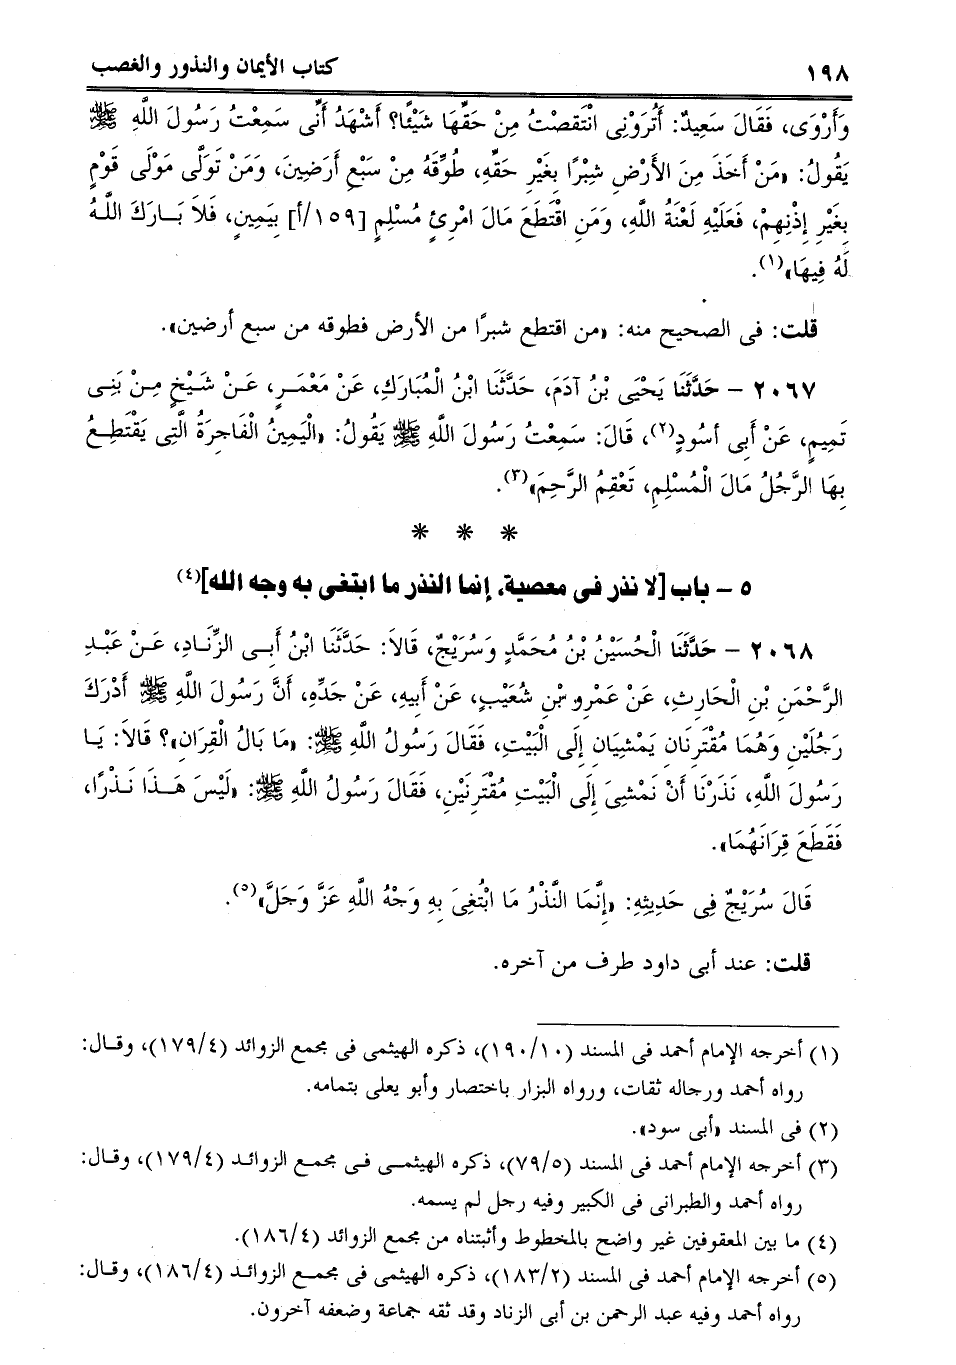 ١٩٨ كتاب الأيمان والنذور والغصب
وَأَرْوَى، فَقَالَ سَعِيدٌ: أَتُرَوْنِى انْتَقَصْتُ مِنْ حَقِّهَا شَيْئًا؟ أَشْهَدُ أَنِّى سَمِعْتُ رَسُولَ اللَّهِ ﷺ
يَقُولُ: «مَنْ أَخَذَ مِنَ الأَرْضِ شِبْرًا بِغَيْرِ حَقِّهِ، طُوِّقَهُ مِنْ سَبْعِ أَرَضِينَ، وَمَنْ تَوَلَّى مَوْلَى قَوْمٍ
بِغَيْرِ إِذْنِهِمْ، فَعَلَيْهِ لَعْنَةُ اللَّهِ، وَمَنِ اقْتَطَعَ مَالَ امْرِئٍ مُسْلِمٍ [١٥٩/أ] بِيَمِينٍ، فَلاَ بَارَكَ اللَّهُ
لَهُ فِيهَا»(١).
قلت: فى الصحيح منه: «من اقتطع شبرًا من الأرض فطوقه من سبع أرضين».
٢٠٦٧ – حَدَّثَنَا يَحْيَى بْنُ آدَمَ، حَدَّثَنَا ابْنُ الْمُبَارَكِ، عَنْ مَعْمَرٍ، عَنْ شَيْخٍ مِنْ بَنِى
تَمِيمٍ، عَنْ أَبِى أسُودٍ(٢)، قَالَ: سَمِعْتُ رَسُولَ اللَّهِ ﷺ يَقُولُ: «الْيَمِينُ الْفَاجِرَةُ الَّتِى يَقْتَطِعُ
بِهَا الرَّجُلُ مَالَ الْمُسْلِمِ، تَعْقِمُ الرَّحِمَ»(٣).
* * *
٥ – باب [لا نذر فى معصية، إنما النذر ما ابتغى به وجه الله](٤)
٢٠٦٨ – حَدَّثَنَا الْحُسَيْنُ بْنُ مُحَمَّدٍ وَسُرَيْجٌ، قَالاَ: حَدَّثَنَا ابْنُ أَبِى الزِّنَادِ، عَنْ عَبْدِ
الرَّحْمَنِ بْنِ الْحَارِثِ، عَنْ عَمْرِو بْنِ شُعَيْبٍ، عَنْ أَبِيهِ، عَنْ جَدِّهِ، أَنَّ رَسُولَ اللَّهِ ﷺ أَدْرَكَ
رَجُلَيْنِ وَهُمَا مُقْتَرِنَانِ يَمْشِيَانِ إِلَى الْبَيْتِ، فَقَالَ رَسُولُ اللَّهِ ﷺ: «مَا بَالُ الْقِرَانِ»؟ قَالاَ: يَا
رَسُولَ اللَّهِ، نَذَرْنَا أَنْ نَمْشِىَ إِلَى الْبَيْتِ مُقْتَرِنَيْنِ، فَقَالَ رَسُولُ اللَّهِ ﷺ: «لَيْسَ هَذَا نَذْرًا،
فَقَطَعَ قِرَانَهُمَا».
قَالَ سُرَيْجٌ فِى حَدِيثِهِ: «إِنَّمَا النَّذْرُ مَا ابْتُغِىَ بِهِ وَجْهُ اللَّهِ عَزَّ وَجَلَّ»(٥).
قلت: عند أبى داود طرف من آخره.
(١) أخرجه الإمام أحمد فى المسند (١٩٠/١٠)، ذكره الهيثمى فى مجمع الزوائد (١٧٩/٤)، وقال:
رواه أحمد ورجاله ثقات، ورواه البزار باختصار وأبو يعلى بتمامه.
(٢) فى المسند «أبى سود».
(٣) أخرجه الإمام أحمد فى المسند (٧٩/٥)، ذكره الهيثمى فى مجمع الزوائد (١٧٩/٤)، وقال:
رواه أحمد والطبرانى فى الكبير وفيه رجل لم يسمه.
(٤) ما بين المعقوفين غير واضح بالمخطوط وأثبتناه من مجمع الزوائد (١٨٦/٤).
(٥) أخرجه الإمام أحمد فى المسند (١٨٣/٢)، ذكره الهيثمى فى مجمع الزوائد (١٨٦/٤)، وقال:
رواه أحمد وفيه عبد الرحمن بن أبى الزناد وقد ثقه جماعة وضعفه آخرون.